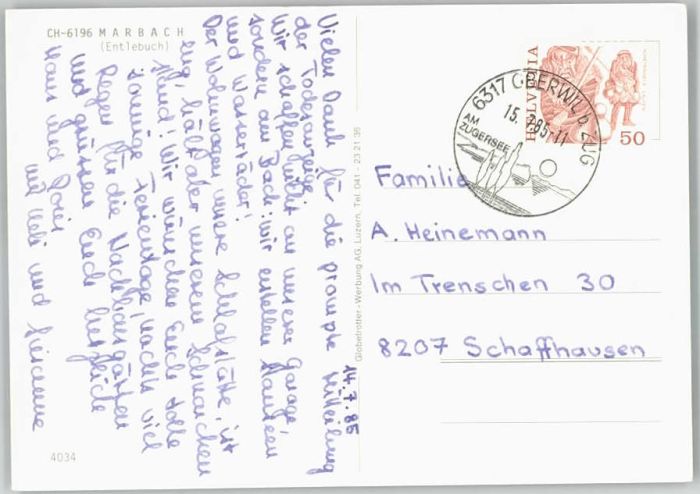 CH-6196 MARBACH
(Entlebuch)
14.7.85
Vielen Dank für die prompte Mitteilung
der Todesanzeige.
Wir schaffen nicht an unserer Garage,
sondern am Bach: wir erstellen Mauern
und Wasserräder!
Der Wohnwagen, unsere Schlafstätte, ist
eng, hält aber unserem Schnarchen
stand! Wir wünschen Euch tolle
sonnige Ferientage, nachts viel
Regen für die Nachbargärten
und grüssen Euch herzlich
Hans und Doris
mit Ueli und Susanne
4034
Globetrotter-Werbung AG, Luzern, Tel. 041 - 23 21 36
HELVETIA
50
6317 OBERWIL b. ZUG
15.7.85-11
AM
ZUGERSEE
Familie
A. Heinemann
Im Trenschen 30
8207 Schaffhausen